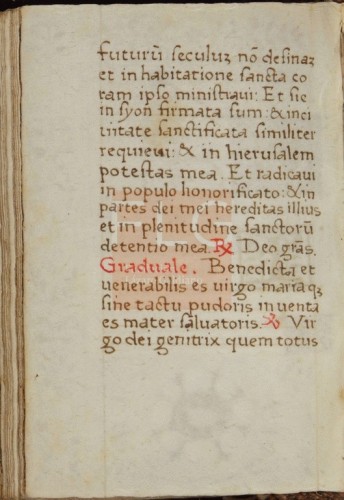 futurū seculuʒ nō desinaʒ
et in habitatione sancta co
ram ipso ministraui: Et sic
in syon firmata sum: & inci
uitate sanctificata similiter
requieui: & in hierusalem
potestas mea. Et radicaui
in populo honorificato: & in
partes dei mei hereditas illius
et in plenitudine sanctorū
detentio mea. ℞ Deo grās.
Graduale. Benedicta et
uenerabilis es uirgo maria qʒ
sine tactu pudoris inuenta
es mater saluatoris. ℣ Vir
go dei genitrix quem totus